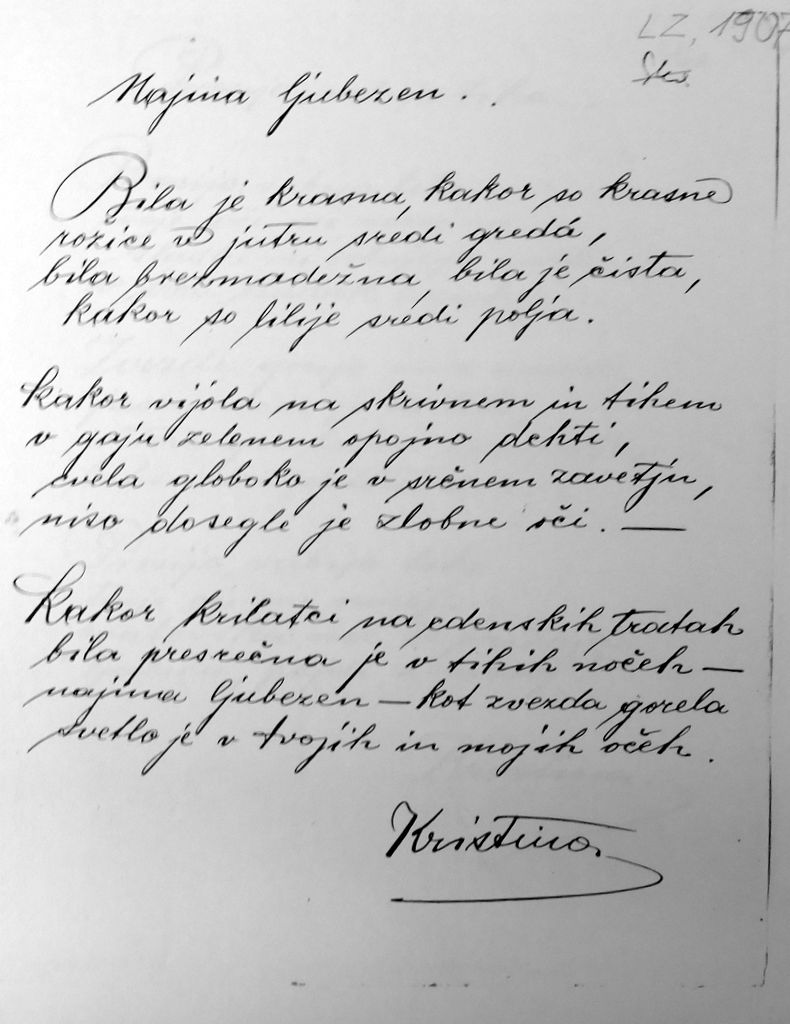 LZ, 1907
Najina ljubezen . .
Bila je krasna, kakor so krasne
rožice v jutru sredi gredá,
bila brezmadežna, bila je čista,
kakor so lilije sredi polja.
Kakor vijola na skrivnem in tihem
v gaju zelenem opojno dehti,
cvela globoko je v srčnem zavetju,
niso dosegle je zlobne oči. —
Kakor krilatci na edenskih tratah
bila presrečna je v tihih nočeh —
najina ljubezen — kot zvezda gorela
svetlo je v tvojih in mojih očeh.
Kristina.